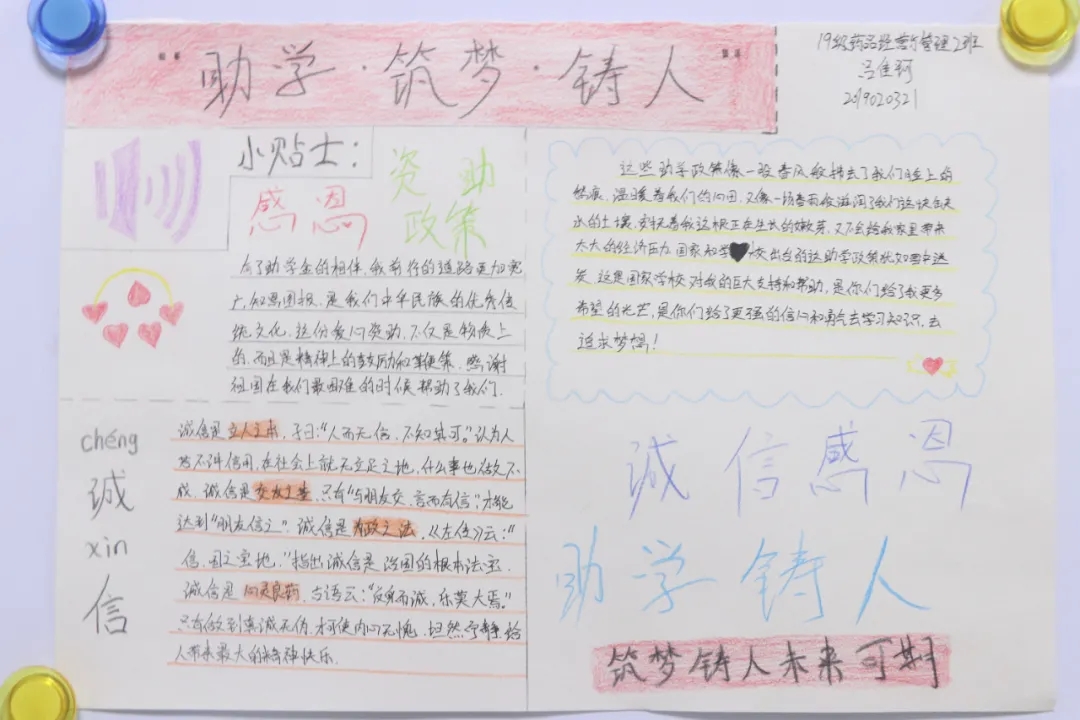 助学·筑梦·铸人
19级药品经营与管理2班
吕佳珂
2019020321
小贴士：
感恩
资助
政策
有了助学金的相伴，我前行的道路更加宽
广，知恩图报，是我们中华民族的优秀传
统文化，这份爱心资助，不仅是物质上
的，而且是精神上的鼓励和鞭策。感谢
祖国在我们最困难的时候帮助了我们。
这些助学政策像一股春风般拂去了我们脸上的
愁痕，温暖着我们的心田，又像一场春雨般滋润了我们这块缺
水的土壤，安抚着我这棵正在生长的嫩芽，又不会给我家里带来
太大的经济压力，国家和学校出台的这助学政策犹如雪中送
炭，这是国家学校对我的巨大支持和帮助，是你们给了我更多
希望的光芒，是你们给了更强的信心和勇气去学习知识，去
追求梦想！
chéng
诚
xìn
信
诚信是立人之本，子曰：“人而无信，不知其可。”认为人
若不讲信用，在社会上就无立足之地，什么事也做不
成。诚信是交友之基，只有“与朋友交，言而有信”，才能
达到“朋友信之”。诚信是为政之法，《左传》云：“
信，国之宝也，”指出诚信是治国的根本法宝。
诚信是心灵良药，古语云：“反身而诚，乐莫大焉。”
只有做到真诚无伪，才可使内心无愧，坦然宁静，给
人带来最大的精神快乐。
诚信感恩
助学铸人
筑梦铸人未来可期